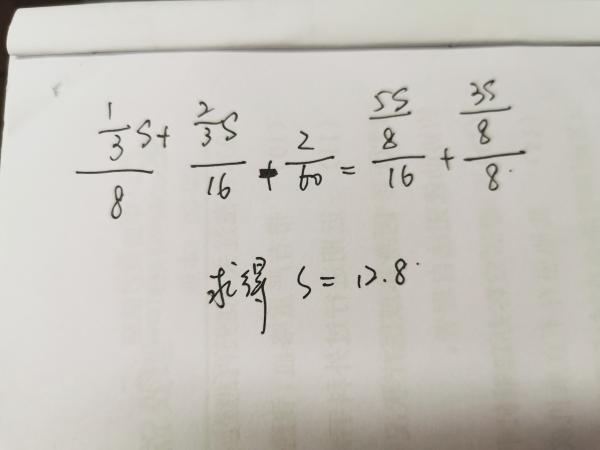 \frac{\frac{1}{3}S}{8} + \frac{\frac{2}{3}S}{16} + \frac{2}{60} = \frac{\frac{5S}{8}}{16} + \frac{\frac{3S}{8}}{8}
求得 S = 12.8